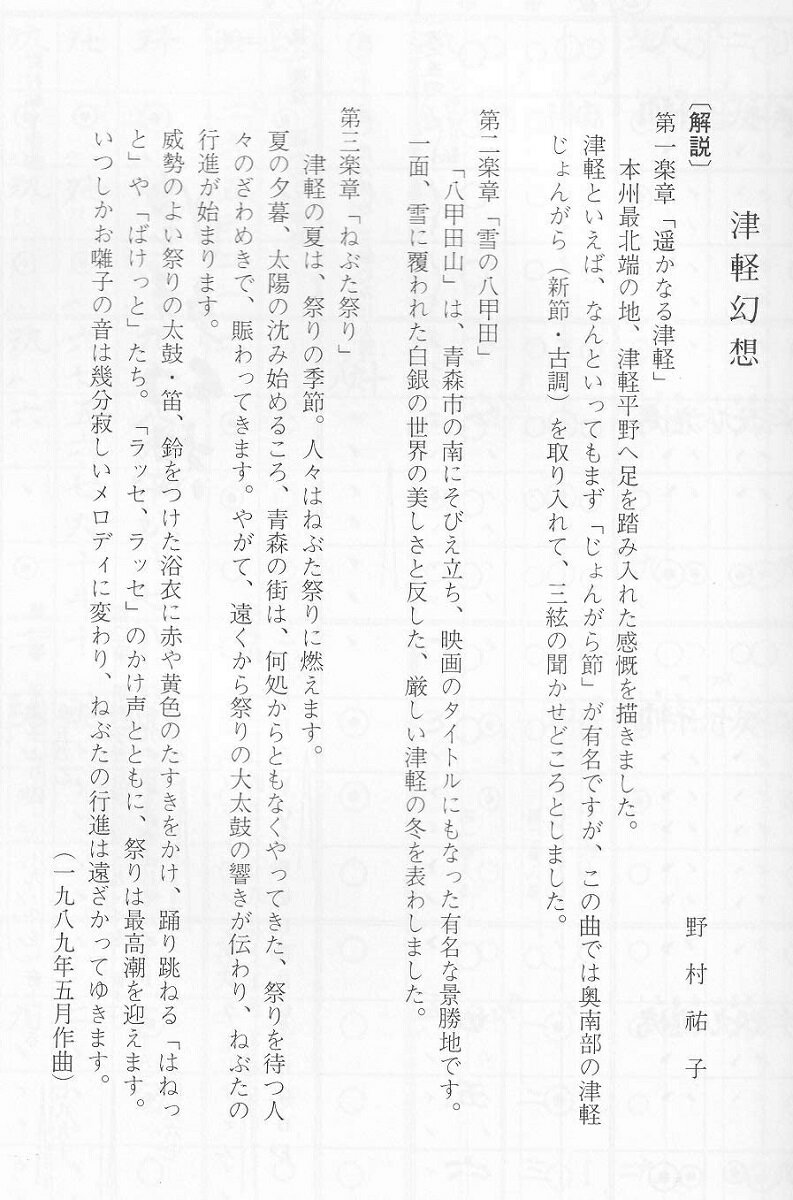 津軽幻想
野村祐子
〔解説〕
第一楽章「遥かなる津軽」
本州最北端の地、津軽平野へ足を踏み入れた感慨を描きました。
津軽といえば、なんといってもまず「じょんがら節」が有名ですが、この曲では奥南部の津軽
じょんがら（新節・古調）を取り入れて、三絃の聞かせどころとしました。
第二楽章「雪の八甲田」
「八甲田山」は、青森市の南にそびえ立ち、映画のタイトルにもなった有名な景勝地です。
一面、雪に覆われた白銀の世界の美しさと反した、厳しい津軽の冬を表わしました。
第三楽章「ねぶた祭り」
津軽の夏は、祭りの季節。人々はねぶた祭りに燃えます。
夏の夕暮、太陽の沈み始めるころ、青森の街は、何処からともなくやってきた、祭りを待つ人
々のざわめきで、賑わってきます。やがて、遠くから祭りの大太鼓の響きが伝わり、ねぶたの
行進が始まります。
威勢のよい祭りの太鼓・笛、鈴をつけた浴衣に赤や黄色のたすきをかけ、踊り跳ねる「はねっ
と」や「ばけっと」たち。「ラッセ、ラッセ」のかけ声とともに、祭りは最高潮を迎えます。
いつしかお囃子の音は幾分寂しいメロディに変わり、ねぶたの行進は遠ざかってゆきます。
（一九八九年五月作曲）